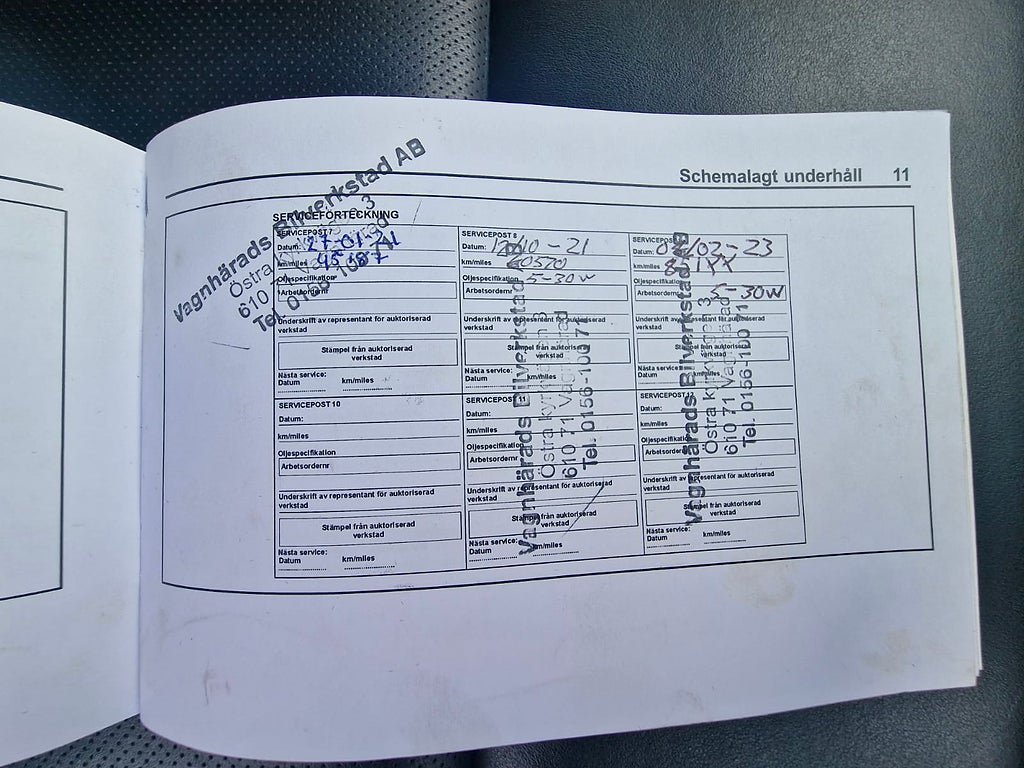 Schemalagt underhåll 11
Vagnhärads Bilverkstad AB
Östra
610
Tel. 0156-100 71
SERVICEFÖRTECKNING
SERVICEPOST 7
Datum: 27-01-
km/miles
Oljespecifikation
Arbetsordernr
Underskrift av representant för auktoriserad
verkstad
Stämpel från auktoriserad
verkstad
Nästa service:
Datum km/miles
SERVICEPOST 8
Datum: 10-21
km/miles 60570
Oljespecifikation 5-30w
Arbetsordernr
Underskrift av representant för auktoriserad
verkstad
Stämpel från auktoriserad
verkstad
Nästa service:
Datum km/miles
SERVICEPOST
Datum: 02-23
km/miles
Oljespecifikation
Arbetsordernr 5-30W
Underskrift av representant för auktoriserad
verkstad
Stämpel från auktoriserad
verkstad
Nästa service:
Datum km/miles
SERVICEPOST 10
Datum:
km/miles
Oljespecifikation
Arbetsordernr
Underskrift av representant för auktoriserad
verkstad
Stämpel från auktoriserad
verkstad
Nästa service:
Datum km/miles
SERVICEPOST 11
Datum:
km/miles
Oljespecifikation
Arbetsordernr
Underskrift av representant för auktoriserad
verkstad
Stämpel från auktoriserad
verkstad
Nästa service:
Datum km/miles
SERVICEPOST
Datum:
km/miles
Oljespecifikation
Arbetsordernr
Underskrift av representant för auktoriserad
verkstad
Stämpel från auktoriserad
verkstad
Nästa service:
Datum km/miles
Vagnhärads Bilverkstad
Östra
610 71 Vagnhärad
Tel. 0156-100 71
Vagnhärads Bilverkstad AB
Östra
610 71 Vagnhärad
Tel. 0156-100 71